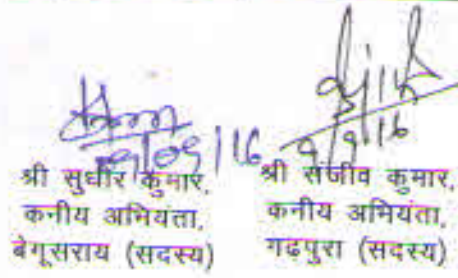 09/09/16
9/9/16
श्री सुधीर कुमार,
कनीय अभियंता,
बेगूसराय (सदस्य)
श्री संजीव कुमार,
कनीय अभियंता,
गढ़पुरा (सदस्य)